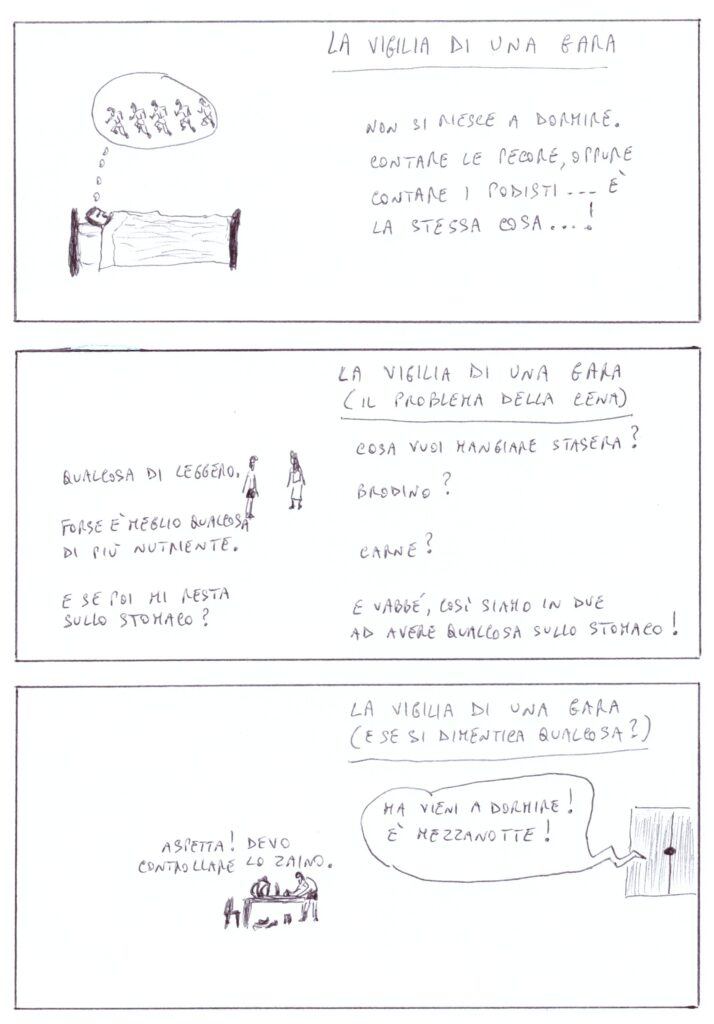 LA VIGILIA DI UNA GARA
NON SI RIESCE A DORMIRE.
CONTARE LE PECORE, OPPURE
CONTARE I PODISTI .... È
LA STESSA COSA....!
LA VIGILIA DI UNA GARA
(IL PROBLEMA DELLA CENA)
COSA VUOI MANGIARE STASERA?
QUALCOSA DI LEGGERO.
BRODINO?
FORSE È MEGLIO QUALCOSA
DI PIÙ NUTRIENTE.
CARNE?
E SE POI MI RESTA
SULLO STOMACO?
E VABBÉ, COSÌ SIAMO IN DUE
AD AVERE QUALCOSA SULLO STOMACO!
LA VIGILIA DI UNA GARA
(E SE SI DIMENTICA QUALCOSA?)
MA VIENI A DORMIRE!
È MEZZANOTTE!
ASPETTA! DEVO
CONTROLLARE LO ZAINO.